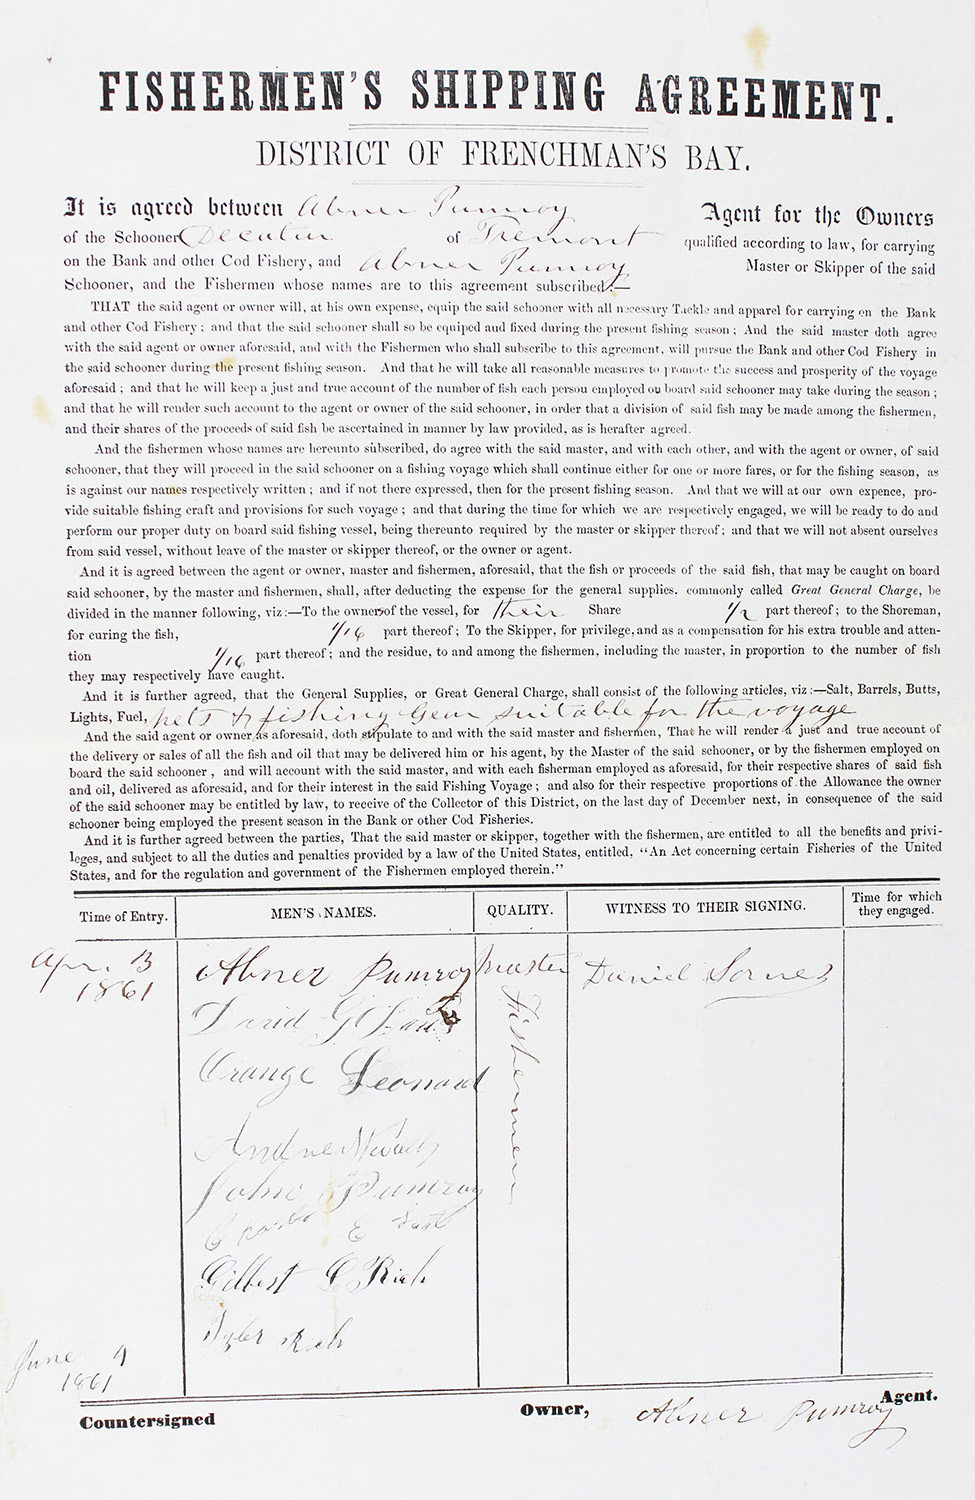 FISHERMEN'S SHIPPING AGREEMENT.
DISTRICT OF FRENCHMAN'S BAY.
It is agreed between Abner Pumroy Agent for the Owners
of the Schooner Decatur of Tremont qualified according to law, for carrying
on the Bank and other Cod Fishery, and Abner Pumroy Master or Skipper of the said
Schooner, and the Fishermen whose names are to this agreement subscribed:—
THAT the said agent or owner will, at his own expense, equip the said schooner with all necessary Tackle and apparel for carrying on the Bank
and other Cod Fishery; and that the said schooner shall so be equiped and fixed during the present fishing season; And the said master doth agree
with the said agent or owner aforesaid, and with the Fishermen who shall subscribe to this agreement, will pursue the Bank and other Cod Fishery in
the said schooner during the present fishing season. And that he will take all reasonable measures to promote the success and prosperity of the voyage
aforesaid; and that he will keep a just and true account of the number of fish each person employed on board said schooner may take during the season;
and that he will render such account to the agent or owner of the said schooner, in order that a division of said fish may be made among the fishermen,
and their shares of the proceeds of said fish be ascertained in manner by law provided, as is herafter agreed.
And the fishermen whose names are hereunto subscribed, do agree with the said master, and with each other, and with the agent or owner, of said
schooner, that they will proceed in the said schooner on a fishing voyage which shall continue either for one or more fares, or for the fishing season, as
is against our names respectively written; and if not there expressed, then for the present fishing season. And that we will at our own expence, pro-
vide suitable fishing craft and provisions for such voyage; and that during the time for which we are respectively engaged, we will be ready to do and
perform our proper duty on board said fishing vessel, being thereunto required by the master or skipper thereof; and that we will not absent ourselves
from said vessel, without leave of the master or skipper thereof, or the owner or agent.
And it is agreed between the agent or owner, master and fishermen, aforesaid, that the fish or proceeds of the said fish, that may be caught on board
said schooner, by the master and fishermen, shall, after deducting the expense for the general supplies. commonly called Great General Charge, be
divided in the manner following, viz:—To the owners of the vessel, for their Share 1/2 part thereof; to the Shoreman,
for curing the fish, 1/16 part thereof; To the Skipper, for privilege, and as a compensation for his extra trouble and atten-
tion 1/16 part thereof; and the residue, to and among the fishermen, including the master, in proportion to the number of fish
they may respectively have caught.
And it is further agreed, that the General Supplies, or Great General Charge, shall consist of the following articles, viz:—Salt, Barrels, Butts,
Lights, Fuel, nets & fishing Gear suitable for the voyage
And the said agent or owner as aforesaid, doth stipulate to and with the said master and fishermen, That he will render a just and true account of
the delivery or sales of all the fish and oil that may be delivered him or his agent, by the Master of the said schooner, or by the fishermen employed on
board the said schooner, and will account with the said master, and with each fisherman employed as aforesaid, for their respective shares of said fish
and oil, delivered as aforesaid, and for their interest in the said Fishing Voyage; and also for their respective proportions of the Allowance the owner
of the said schooner may be entitled by law, to receive of the Collector of this District, on the last day of December next, in consequence of the said
schooner being employed the present season in the Bank or other Cod Fisheries.
And it is further agreed between the parties, That the said master or skipper, together with the fishermen, are entitled to all the benefits and privi-
leges, and subject to all the duties and penalties provided by a law of the United States, entitled, "An Act concerning certain Fisheries of the United
States, and for the regulation and government of the Fishermen employed therein."
Time of Entry. MEN'S NAMES. QUALITY. WITNESS TO THEIR SIGNING. Time for which
they engaged.
Apr. 13 Abner Pumroy Master Daniel Somes
1861
David G
Fishermen
Orange Leonard
Andrew
John Pumroy
Charles E
Gilbert Rich
Tyler Rich
June 4
1861
Countersigned Owner, Abner Pumroy Agent.